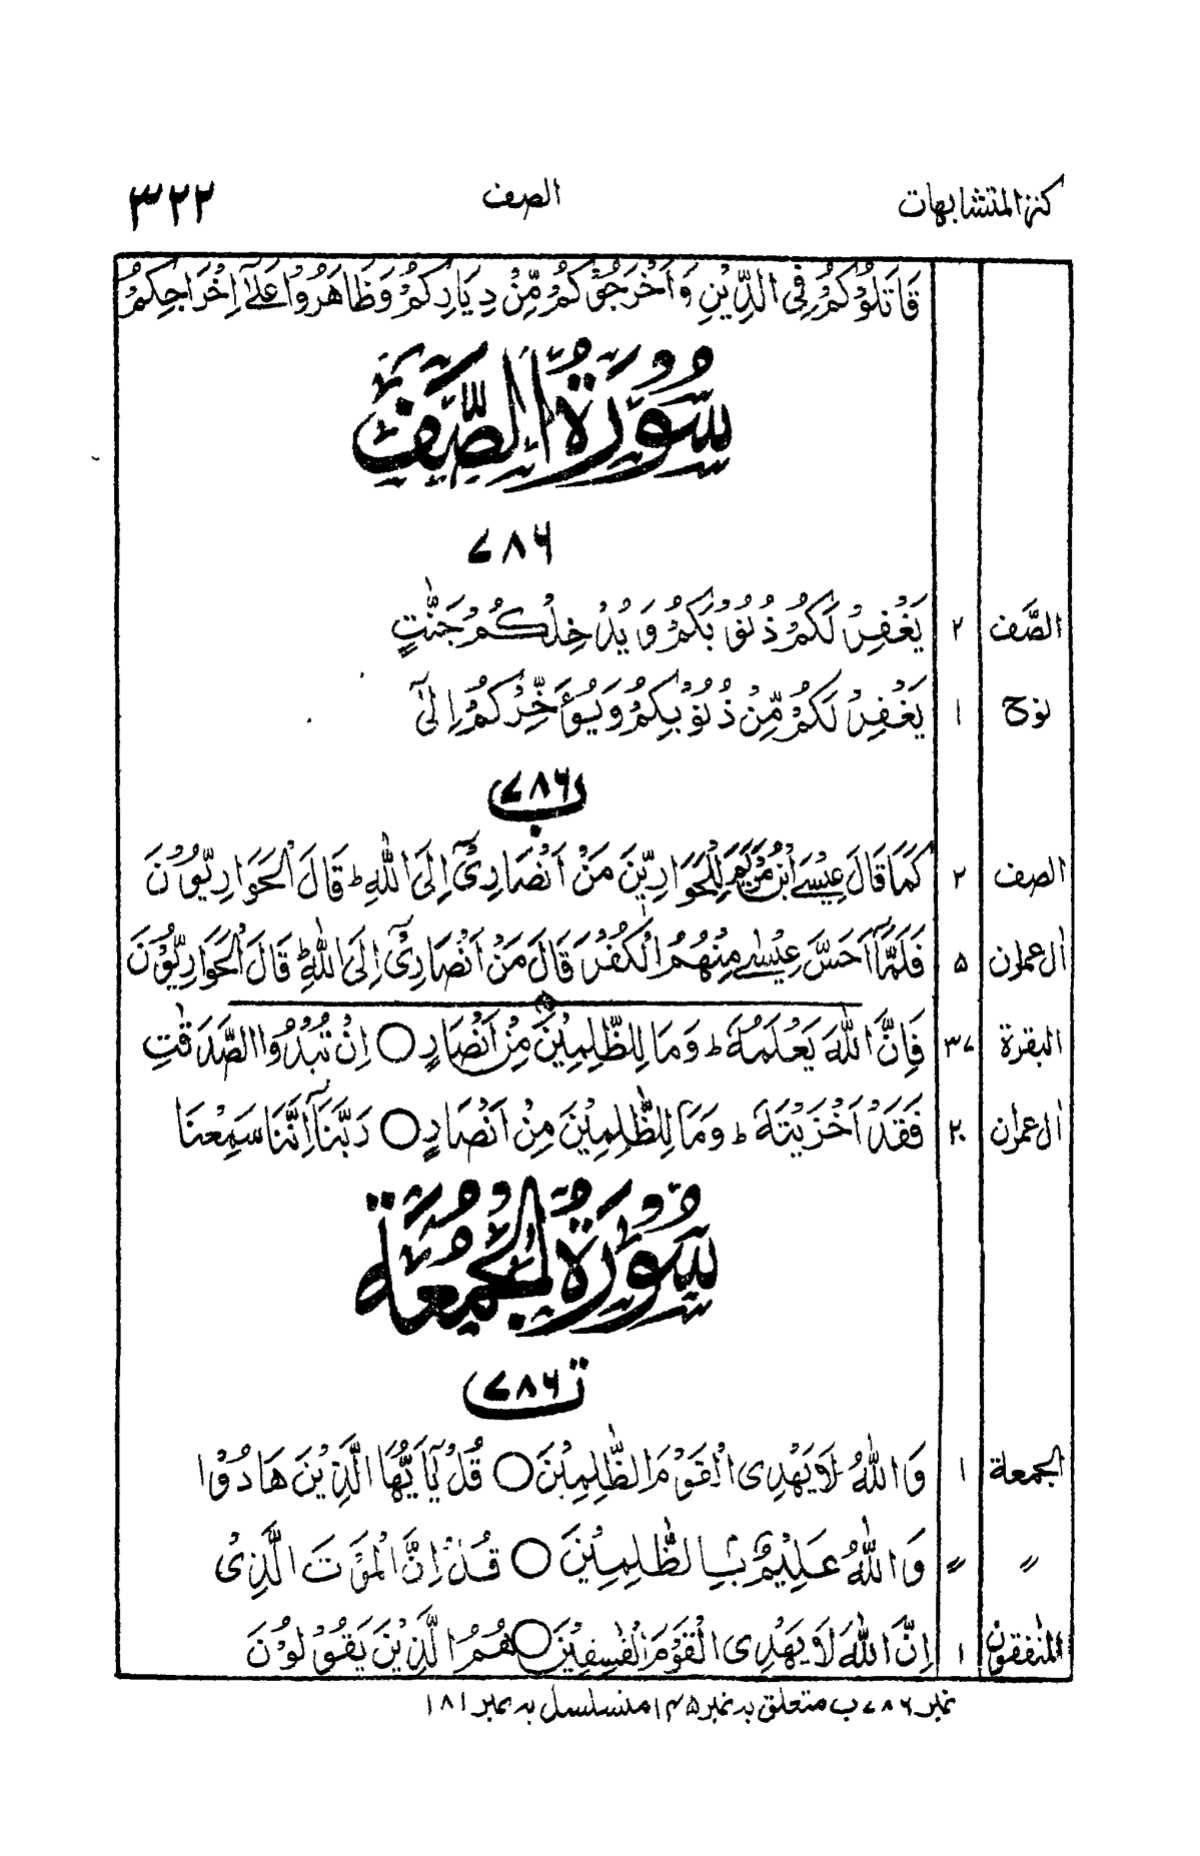 كنز المتشابهات الصف ٣٢٢
قَاتَلُوْكُمْ فِي الدِّيْنِ وَاَخْرَجُوْكُمْ مِّنْ دِيَارِكُمْ وَظَاهَرُوْا عَلٰٓى اِخْرَاجِكُمْ
سُوْرَةُ الصَّفِّ
٧٨٦
الصَّف ٢ يَغْفِرْ لَكُمْ ذُنُوْبَكُمْ وَيُدْخِلْكُمْ جَنّٰتٍ
نوح ١ يَغْفِرْ لَكُمْ مِّنْ ذُنُوْبِكُمْ وَيُؤَخِّرْكُمْ اِلٰٓى
٧٨٦ ب
الصف ٢ كَمَا قَالَ عِيْسَى ابْنُ مَرْيَمَ لِلْحَوَارِيّٖنَ مَنْ اَنْصَارِيْٓ اِلَى اللّٰهِ ط قَالَ الْحَوَارِيُّوْنَ
اٰل عمرٰن ٥ فَلَمَّآ اَحَسَّ عِيْسٰى مِنْهُمُ الْكُفْرَ قَالَ مَنْ اَنْصَارِيْٓ اِلَى اللّٰهِ ط قَالَ الْحَوَارِيُّوْنَ
البقرة ٣٧ فَاِنَّ اللّٰهَ يَعْلَمُهٗ ط وَمَا لِلظّٰلِمِيْنَ مِنْ اَنْصَارٍ ○ اِنْ تُبْدُوا الصَّدَقٰتِ
اٰل عمرٰن ٢٠ فَقَدْ اَخْزَيْتَهٗ ط وَمَا لِلظّٰلِمِيْنَ مِنْ اَنْصَارٍ ○ رَبَّنَآ اِنَّنَا سَمِعْنَا
سُوْرَةُ الْجُمُعَةِ
٧٨٦ ت
الجمعة ١ وَاللّٰهُ لَا يَهْدِى الْقَوْمَ الظّٰلِمِيْنَ ○ قُلْ يٰٓاَيُّهَا الَّذِيْنَ هَادُوْٓا
〃 〃 وَاللّٰهُ عَلِيْمٌۢ بِالظّٰلِمِيْنَ ○ قُلْ اِنَّ الْمَوْتَ الَّذِيْ
المنٰفقون ١ اِنَّ اللّٰهَ لَا يَهْدِى الْقَوْمَ الْفٰسِقِيْنَ ○ هُمُ الَّذِيْنَ يَقُوْلُوْنَ
نمبر ٧٨٦ ب متعلق بہ نمبر ١٤٥ متسلسل بہ نمبر ١٨١